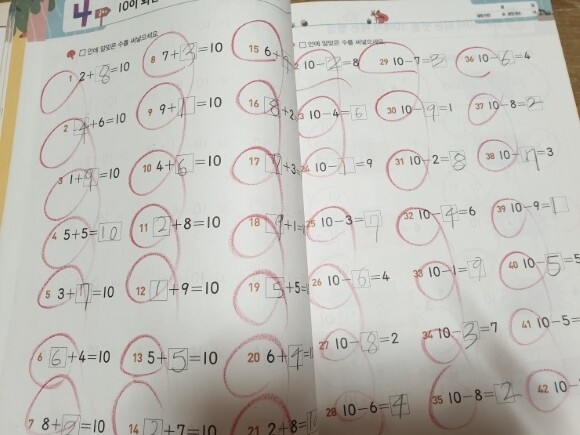 4
10이 되
□ 안에 알맞은 수를 써넣으세요.
1 2+8=10
2 4+6=10
3 1+9=10
4 5+5=10
5 3+7=10
6 6+4=10
7 8+
8 7+3=10
9 9+1=10
10 4+6=10
11 2+8=10
12 1+9=10
13 5+5=10
14 +7=10
15 6+
16 8+2
17 +3
18 9+1=
19 5+5=
20 6+4=
21 2+8=
□ 안에 알맞은 수를 써넣으세요.
2 10-2=8
3 10-4=6
24 10-1=9
25 10-3=7
26 10-6=4
27 10-8=2
28 10-6=4
29 10-7=3
30 10-9=1
31 10-2=8
32 10-4=6
33 10-1=9
34 10-3=7
35 10-8=2
36 10-6=4
37 10-8=2
38 10-7=3
39 10-9=1
40 10-5=5
41 10-5=
42 10-